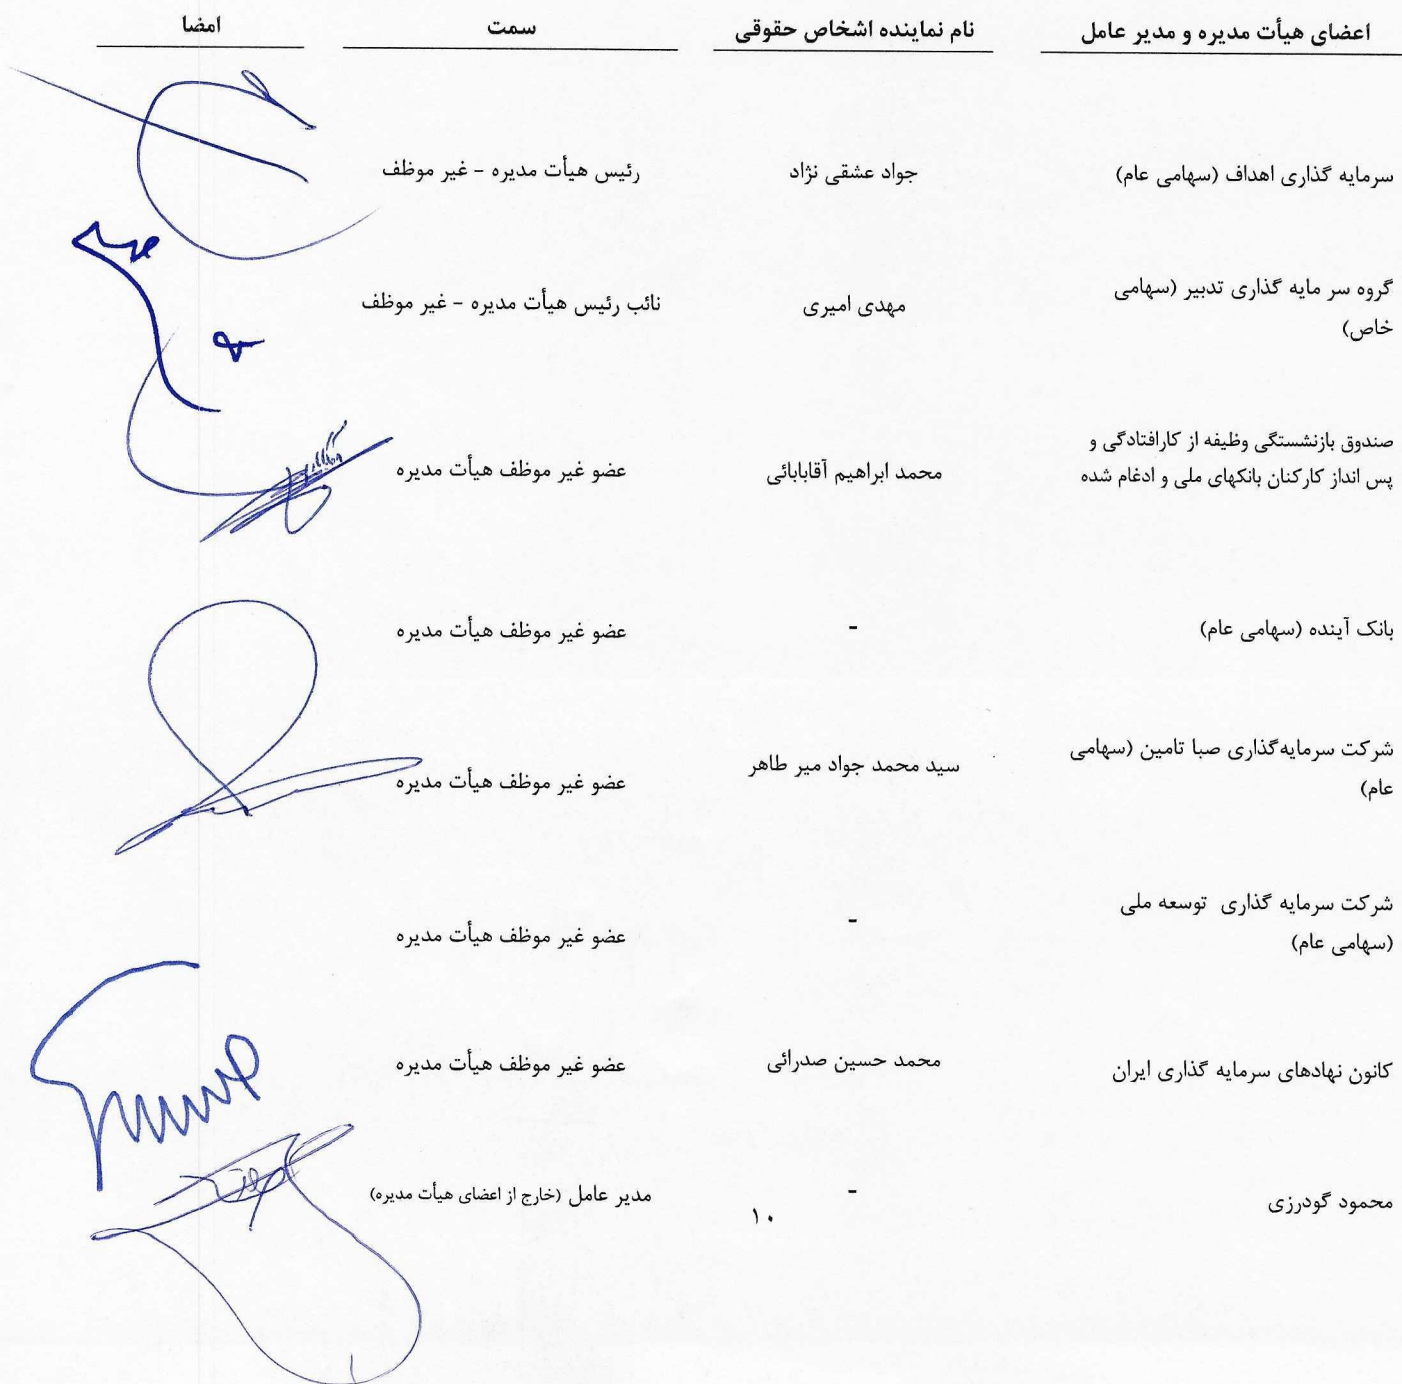 اعضای هیأت مدیره و مدیر عامل نام نماینده اشخاص حقوقی سمت امضا
سرمایه گذاری اهداف (سهامی عام) جواد عشقی نژاد رئیس هیأت مدیره - غیر موظف
گروه سر مایه گذاری تدبیر (سهامی
خاص) مهدی امیری نائب رئیس هیأت مدیره - غیر موظف
صندوق بازنشستگی وظیفه از کارافتادگی و
پس انداز کارکنان بانکهای ملی و ادغام شده محمد ابراهیم آقابابائی عضو غیر موظف هیأت مدیره
بانک آینده (سهامی عام) - عضو غیر موظف هیأت مدیره
شرکت سرمایه‌گذاری صبا تامین (سهامی
عام) سید محمد جواد میر طاهر عضو غیر موظف هیأت مدیره
شرکت سرمایه گذاری توسعه ملی
(سهامی عام) - عضو غیر موظف هیأت مدیره
کانون نهادهای سرمایه گذاری ایران محمد حسین صدرائی عضو غیر موظف هیأت مدیره
محمود گودرزی - مدیر عامل (خارج از اعضای هیأت مدیره)
۱۰